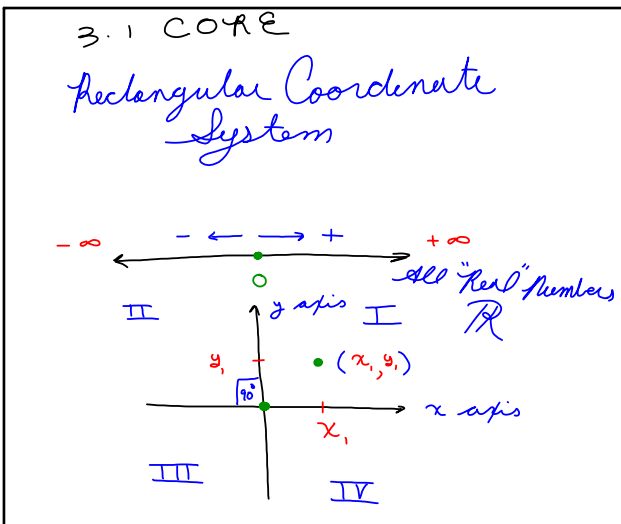 3.1 CORE
Rectangular Coordinate
System
- ∞ - ← → + + ∞
0
All "Real" Numbers
ℝ
II y axis I
y₁ (x₁, y₁)
90°
x axis
x₁
III IV